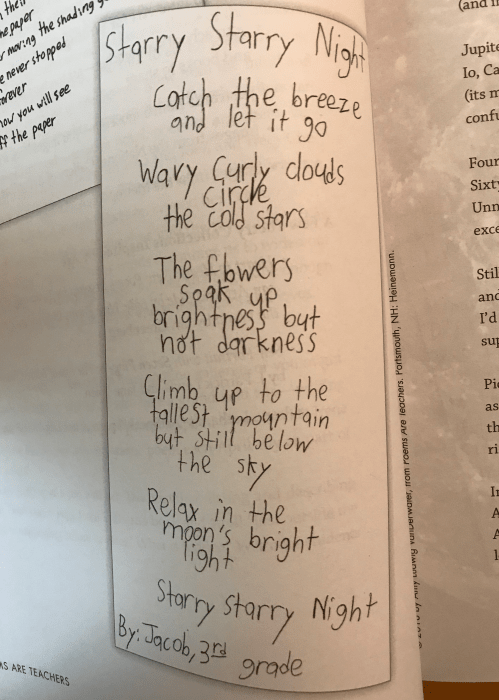 their
the paper
moving the shading
e never stopped
orever
now you will see
ff the paper
Starry Starry Night
Catch the breeze
and let it go
Wavy Curly clouds
circle
the cold stars
The flowers
soak up
brightness but
not darkness
Climb up to the
tallest mountain
but still below
the sky
Relax in the
moon's bright
light
Starry Starry Night
By: Jacob, 3rd
grade
MS ARE TEACHERS
Vanderwater, from Poems Are Teachers. Portsmouth, NH: Heinemann.
(and
Jupite
Io, Ca
(its m
confu
Four
Sixty
Unn
exce
Still
and
I'd
sup
Pi
as
th
ri
I
A
A